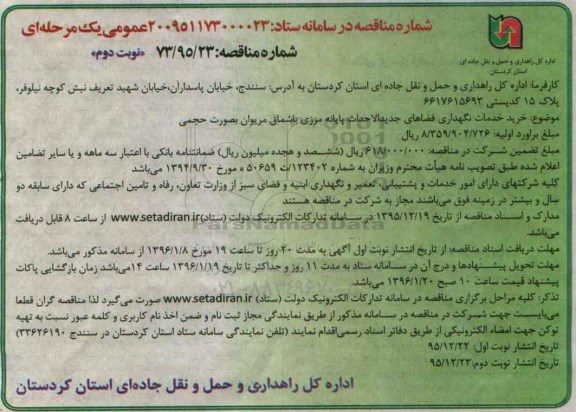 شماره مناقصه در سامانه ستاد: ۲۰۰۹۵۱۱۷۳۰۰۰۰۲۳ عمومی یک مرحله‌ای
شماره مناقصه: ۷۳/۹۵/۲۳ «نوبت دوم»
اداره کل راهداری و حمل و نقل جاده ای
استان کردستان
کارفرما: اداره کل راهداری و حمل و نقل جاده ای استان کردستان به آدرس: سنندج، خیابان پاسداران،خیابان شهید تعریف نبش کوچه نیلوفر،
پلاک ۱۵ کدپستی ۶۶۱۷۶۱۵۶۹۳
موضوع: خرید خدمات نگهداری فضاهای جدیدالاحداث پایانه مرزی باشماق مریوان بصورت حجمی
مبلغ برآورد اولیه: ۸/۳۵۹/۹۰۴/۷۲۶ ریال
مبلغ تضمین شرکت در مناقصه: ۶۱۸/۰۰۰/۰۰۰ ریال (ششصد و هجده میلیون ریال) ضمانتنامه بانکی با اعتبار سه ماهه و یا سایر تضامین
اعلام شده طبق تصویب نامه هیأت محترم وزیران به شماره ۱۲۳۴۰۲/ت ۵۰۶۵۹ ه مورخ ۱۳۹۴/۹/۳۰ می‌باشد
کلیه شرکتهای دارای امور خدمات و پشتیبانی، تعمیر و نگهداری ابنیه و فضای سبز از وزارت تعاون، رفاه و تامین اجتماعی که دارای سابقه دو
سال و بیشتر در زمینه فوق می‌باشند مجاز به شرکت در مناقصه هستند
مدارک و اسناد مناقصه از تاریخ ۱۳۹۵/۱۲/۱۹ در سامانه تدارکات الکترونیک دولت (ستاد)www.setadiran.ir از ساعت ۸ قابل دریافت
می‌باشد.
مهلت دریافت اسناد مناقصه: از تاریخ انتشار نوبت اول آگهی به مدت ۲۰ روز تا ساعت ۱۹ مورخ ۱۳۹۶/۱/۸ از سامانه مذکور می‌باشد.
مهلت تحویل پیشنهادها و درج آن در سامانه ستاد به مدت ۱۱ روز و حداکثر تا تاریخ ۱۳۹۶/۱/۱۹ ساعت ۱۴می‌باشد زمان بازگشایی پاکات
پیشنهاد قیمت ساعت ۱۰ صبح ۱۳۹۶/۱/۲۰ می‌باشد.
تذکر: کلیه مراحل برگزاری مناقصه در سامانه تدارکات الکترونیک دولت (ستاد) www.setadiran.ir صورت می‌گیرد لذا مناقصه گران قطعا
می‌بایست جهت شرکت در مناقصه در سامانه مذکور از طریق نمایندگی مجاز ثبت نام و ضمن اخذ نام کاربری و کلمه عبور نسبت به تهیه
توکن جهت امضاء الکترونیکی از طریق دفاتر اسناد رسمی‌اقدام نمایند (تلفن نمایندگی سامانه ستاد استان کردستان در سنندج ۳۳۶۲۶۱۹۰)
تاریخ انتشار نوبت اول: ۹۵/۱۲/۲۲
تاریخ انتشار نوبت دوم:۹۵/۱۲/۲۳
اداره کل راهداری و حمل و نقل جاده‌ای استان کردستان